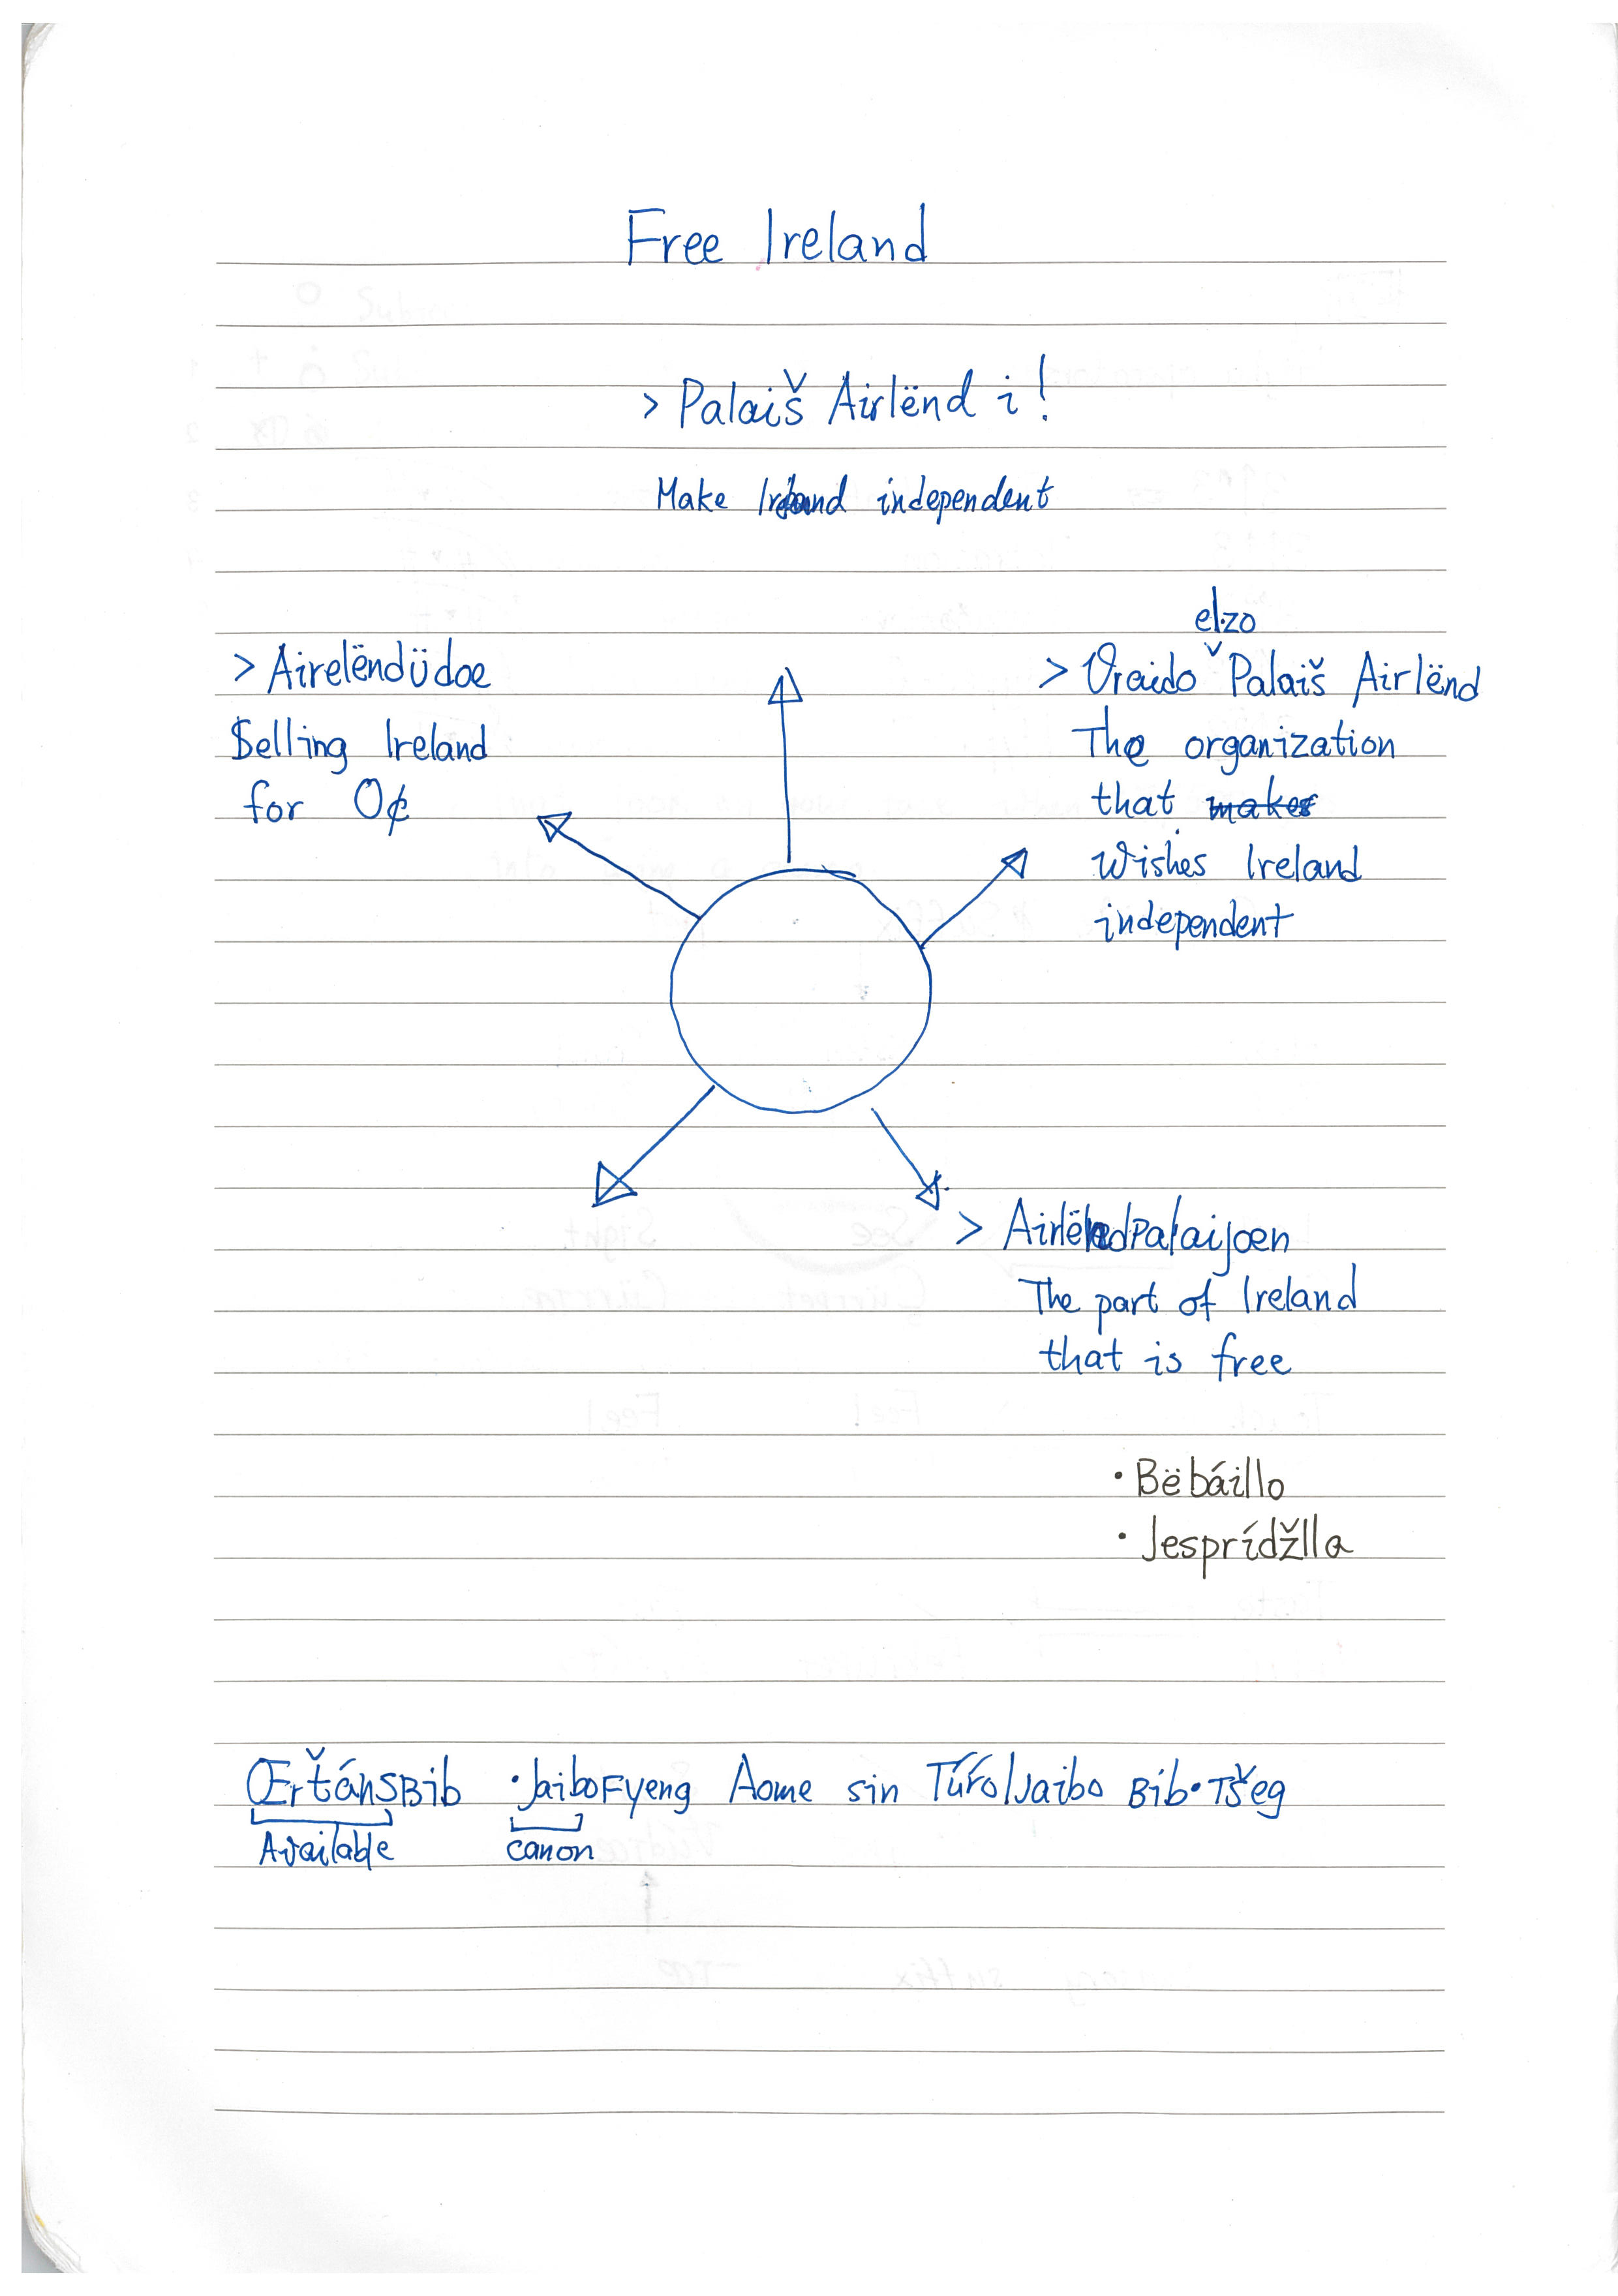 Free Ireland
> Palaiš Airlënd i!
Make Ireland independent
> Airelëndüdoe
Selling Ireland
for 0¢
elzo
> Vraido ˇ Palaiš Airlënd
The organization
that makes
wishes Ireland
independent
> AirlëndPalaijoen
The part of Ireland
that is free
• Bëbáillo
• Jesprídžlla
ŒrťánsBib •JaiboFyeng Aome sin Túŕo/Jaibo Bib•Tšeg
Available canon